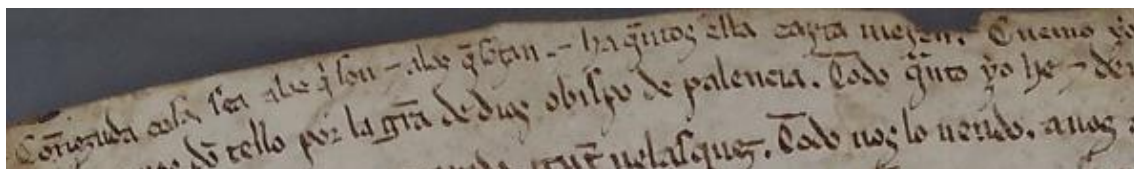 Conoszuda cosa sea alos q̃ son ⁊ alos q̃ serã ⁊ ha q̃ntos esta carta uieren. Cuemo yo
dõ tello por la gr̃a de dios obispo de palencia. Todo q̃nto yo he ⁊ de
uelasquez. Todo uos lo uendo. auos